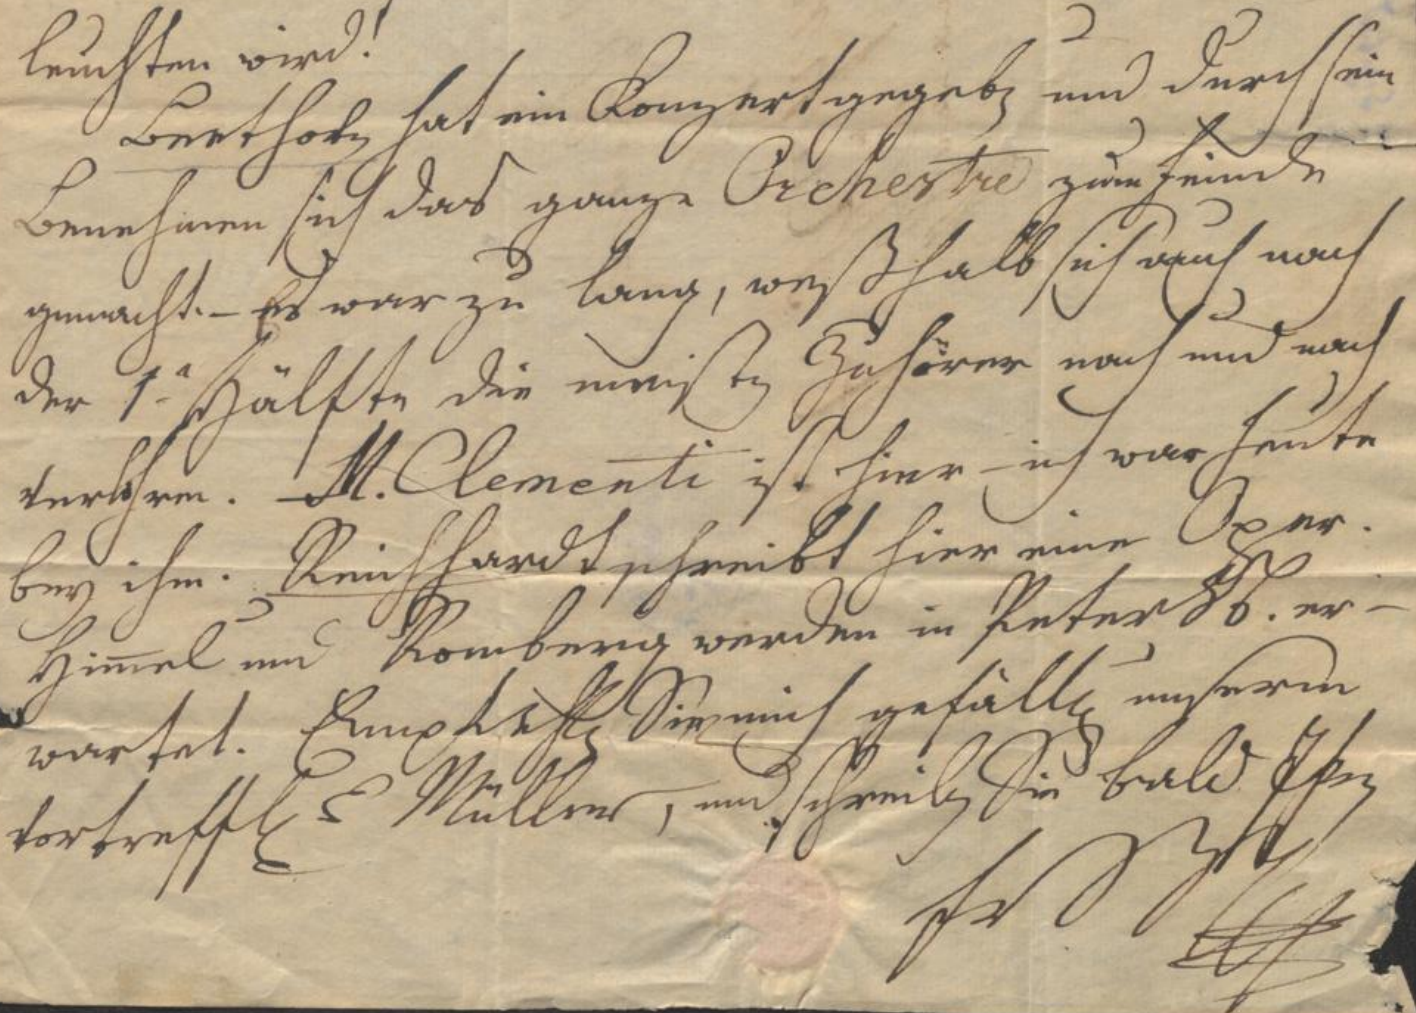 leuchten wird!
Beethovn hat ein Konzert gegebn und durch sein
Benehmen sich das ganze Orchestre zum Feinde
gemacht. – Es war zu lang, weßhalb sich auch nach
der 1n Hälfte die meistn Zuhörer nach und nach
verlohren. M. Clementi ist hier – ich war heute
bey ihm. Reichhardt schreibt hier eine Oper.
Himmel und Romberg werden in Petersb. er-
wartet. Empfehln Sie mich gefälln unserm
vortreffl Müller, und schreibn Sie bald Ihrn
Fr